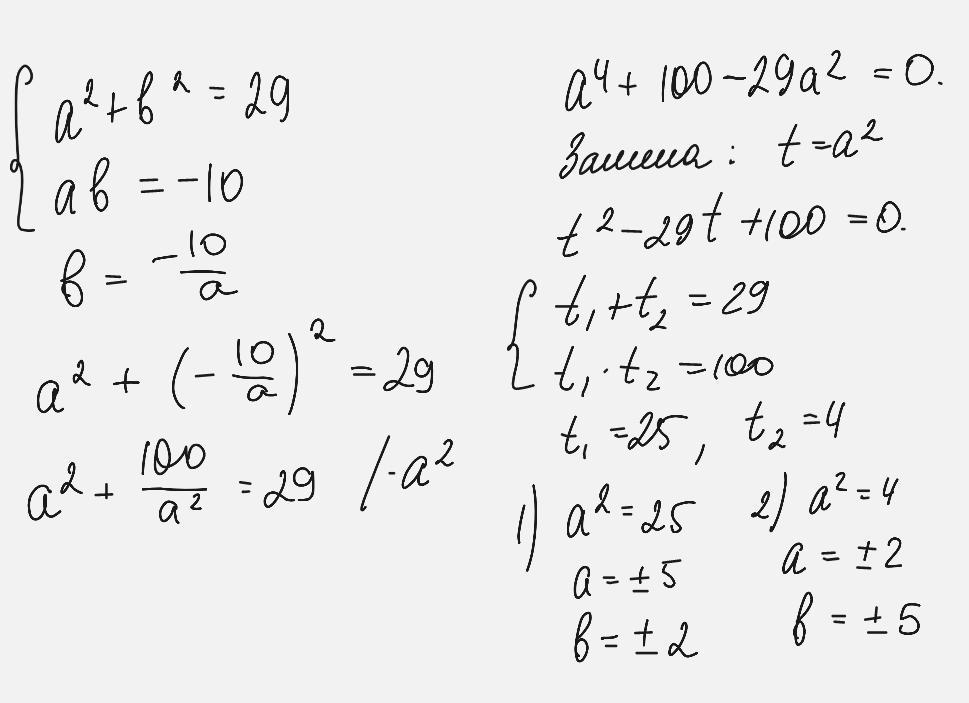 a² + b² = 29
ab = -10
b = -10/a
a² + (-10/a)² = 29
a² + 100/a² = 29 /·a²
a⁴ + 100 - 29a² = 0.
Замена : t = a²
t² - 29t + 100 = 0.
t₁ + t₂ = 29
t₁ · t₂ = 100
t₁ = 25, t₂ = 4
1) a² = 25 2) a² = 4
a = ± 5 a = ± 2
b = ± 2 b = ± 5